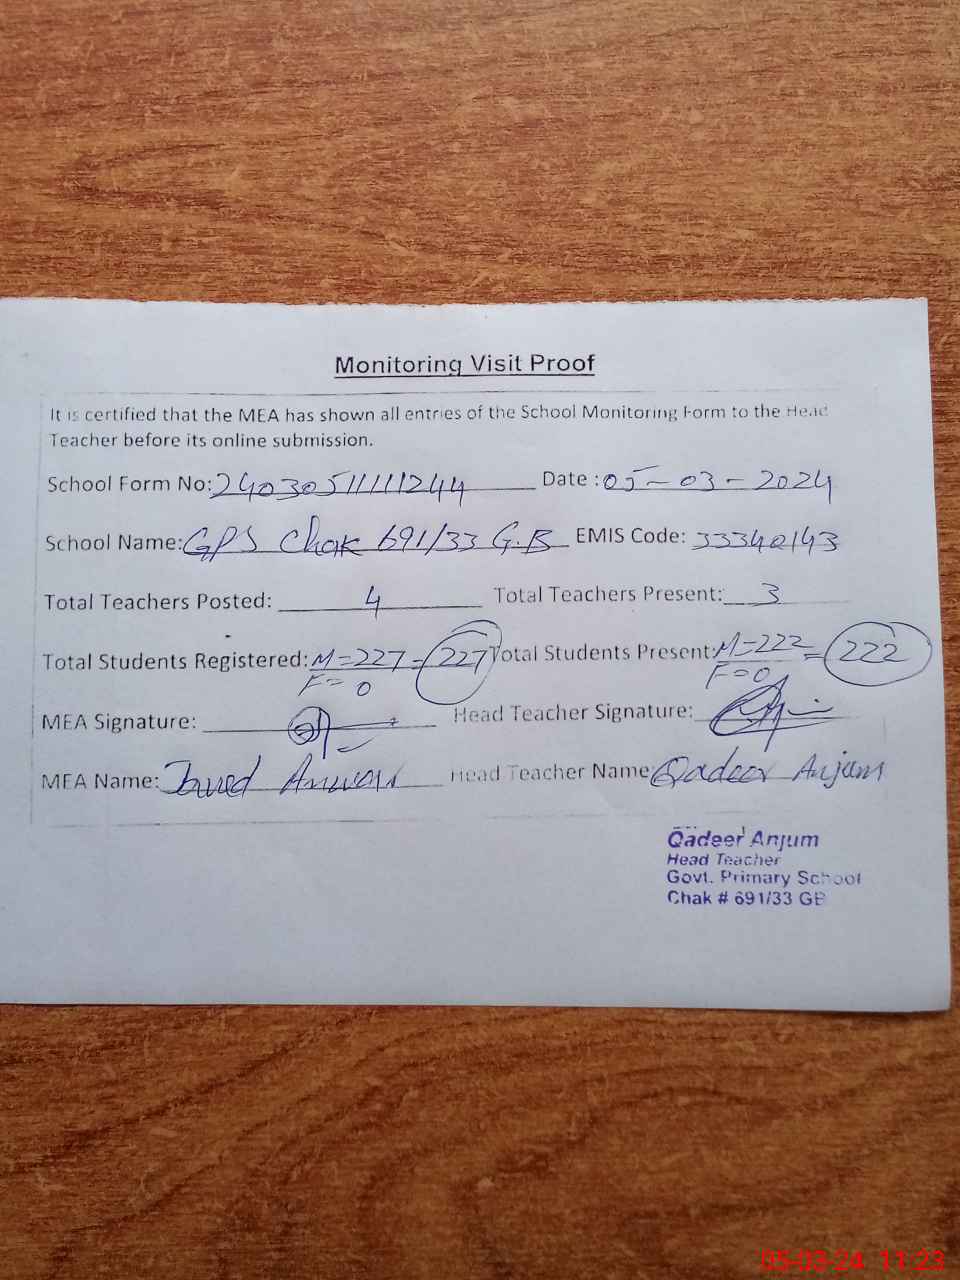 Monitoring Visit Proof
It is certified that the MEA has shown all entries of the School Monitoring Form to the Head
Teacher before its online submission.
School Form No: 24030511111244 Date : 05-03-2024
School Name: GPS Chak 691/33 G.B EMIS Code: 33340143
Total Teachers Posted: 4 Total Teachers Present: 3
Total Students Registered: M=227 = 227 Total Students Present: M=222 = 222
F=0 F=0
MEA Signature: Head Teacher Signature:
MEA Name: Javed Anwar Head Teacher Name: Qadeer Anjum
Qadeer Anjum
Head Teacher
Govt. Primary School
Chak # 691/33 GB
05-03-24 11:23